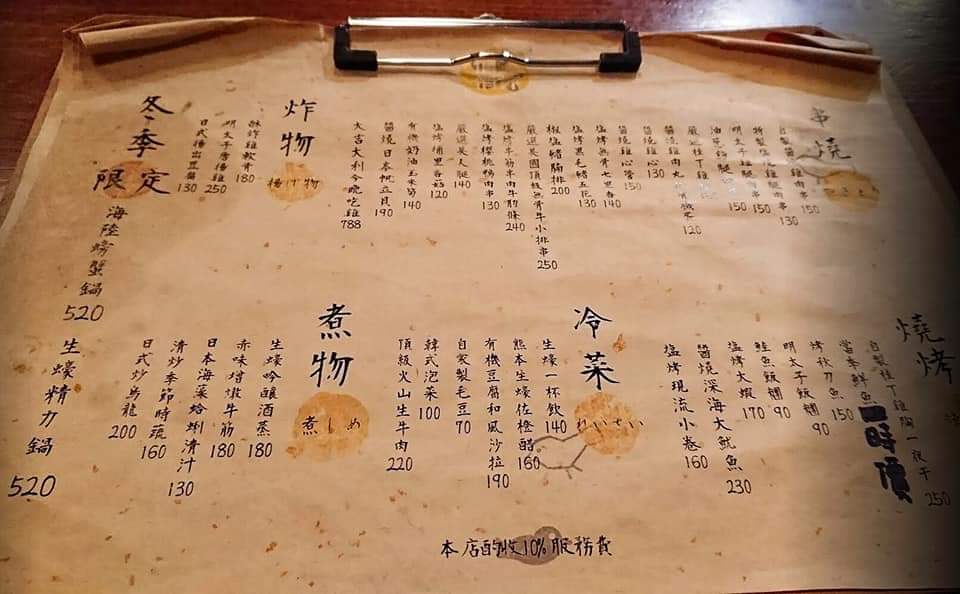 串燒
自製醬烤雞肉串 150
130
明太子雞腿肉串 150
120
醬燒雞心 130
醬燒雞心管 150
塩烤無骨七里香 140
塩烤黑毛豬五花 130
椒塩豬腸排 200
嚴選美國頂級無骨牛小排串 250
塩烤牛筋串肉牛肋條 240
塩烤櫻桃鴨肉串 130
嚴選美人腿 140
塩烤埔里香菇 120
有機奶油玉米筍 140
醬燒日本帆立貝 190
大吉大利今晚吃雞 788
炸物
揚げ物
酥炸雞軟骨 180
明太子唐揚雞 250
日式揚出豆腐 130
冬季限定
海陸螃蟹鍋 520
生蠔精力鍋 520
燒烤
自製桂丁雞胸一夜干 250
當季鮮魚 時價
烤秋刀魚 150
明太子飯糰 90
鮭魚飯糰 90
塩烤大蝦 170
醬燒深海大魷魚 230
塩烤現流小卷 160
冷菜
れいさい
生蠔一杯飲 140
熊本生蠔佐橙醋 160
有機豆腐和風沙拉 190
自家製毛豆 70
韓式泡菜 100
頂級火山生牛肉 220
煮物
煮しめ
生蠔吟釀酒蒸 180
赤味增燉牛筋 180
日本海菜蛤蜊清汁 130
清炒季節時蔬 160
日式炒烏龍 200
本店酌收10%服務費